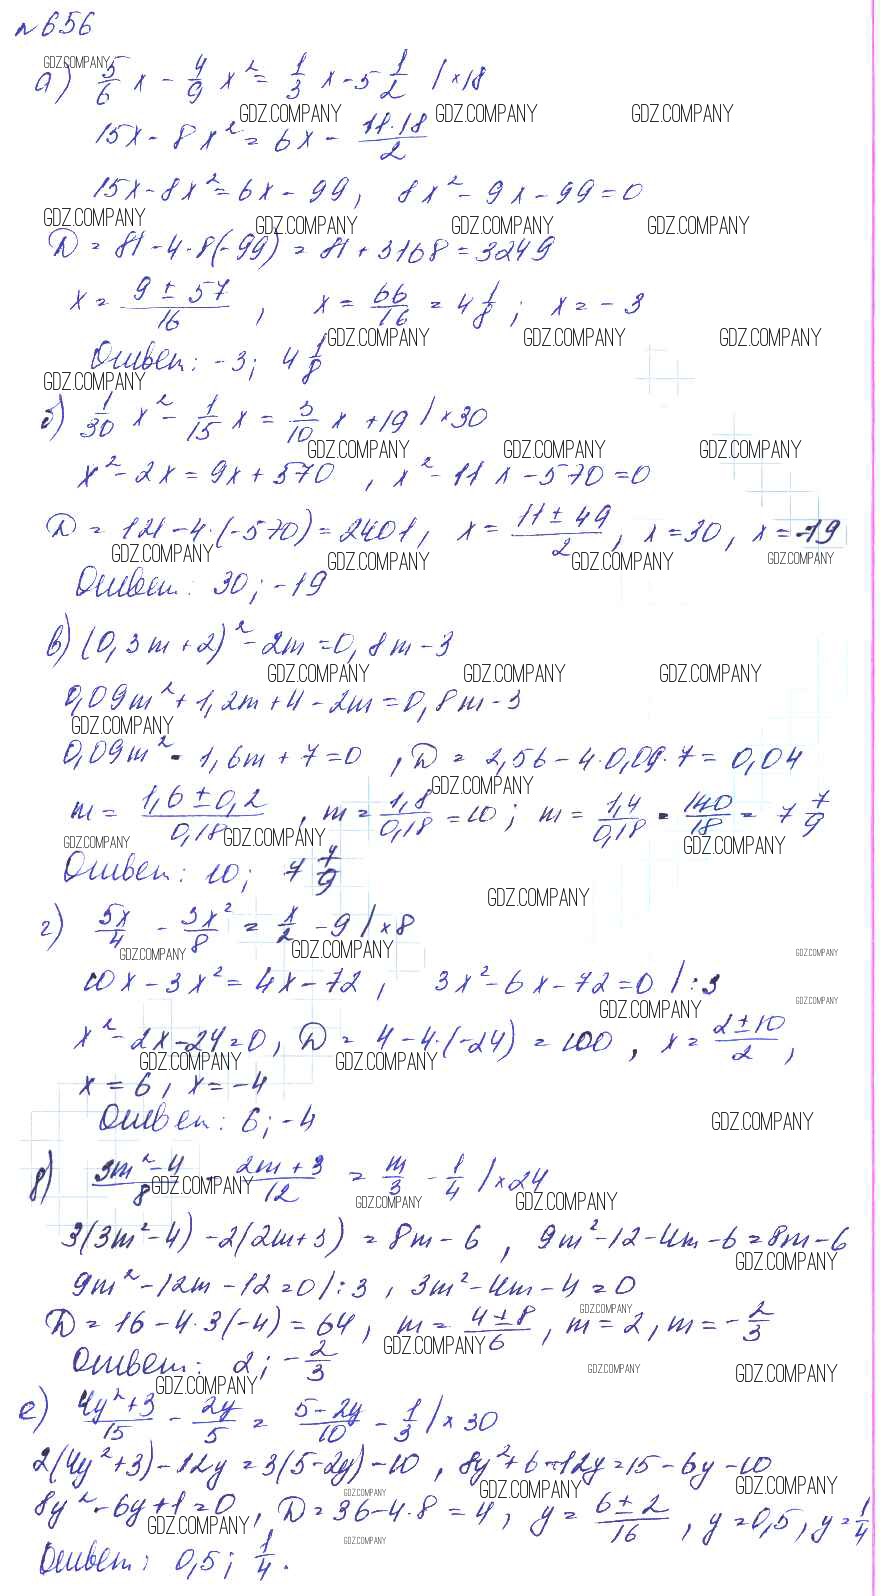 №656
GDZ.COMPANY
а) 5/6 x - 4/9 x² = 1/3 x - 5 1/2 | ×18
GDZ.COMPANY GDZ.COMPANY GDZ.COMPANY
15x - 8x² = 6x - 11·18/2
15x - 8x² = 6x - 99, 8x² - 9x - 99 = 0
GDZ.COMPANY GDZ.COMPANY GDZ.COMPANY GDZ.COMPANY
D = 81 - 4·8(-99) = 81 + 3168 = 3249
x = 9 ± 57/16, x = 66/16 = 4 1/8; x = -3
GDZ.COMPANY GDZ.COMPANY GDZ.COMPANY
Ответ: -3; 4 1/8
GDZ.COMPANY
б) 1/30 x² - 1/15 x = 3/10 x + 19 | ×30
GDZ.COMPANY GDZ.COMPANY GDZ.COMPANY
x² - 2x = 9x + 570, x² - 11x - 570 = 0
D = 121 - 4·(-570) = 2401, x = 11 ± 49/2, x = 30, x = -19
GDZ.COMPANY GDZ.COMPANY GDZ.COMPANY GDZ.COMPANY
Ответ: 30; -19
в) (0,3m + 2)² - 2m = 0,8m - 3
GDZ.COMPANY GDZ.COMPANY GDZ.COMPANY
0,09m² + 1,2m + 4 - 2m = 0,8m - 3
GDZ.COMPANY
0,09m² - 1,6m + 7 = 0, D = 2,56 - 4·0,09·7 = 0,04
GDZ.COMPANY
m = 1,6 ± 0,2/0,18, m = 1,8/0,18 = 10; m = 1,4/0,18 = 140/18 = 7 7/9
GDZ.COMPANY GDZ.COMPANY GDZ.COMPANY
Ответ: 10; 7 7/9
GDZ.COMPANY
г) 5x/4 - 3x²/8 = x/2 - 9 | ×8
GDZ.COMPANY GDZ.COMPANY GDZ.COMPANY
10x - 3x² = 4x - 72, 3x² - 6x - 72 = 0 | :3
GDZ.COMPANY GDZ.COMPANY
x² - 2x - 24 = 0, D = 4 - 4·(-24) = 100, x = 2 ± 10/2,
GDZ.COMPANY GDZ.COMPANY
x = 6, x = -4
Ответ: 6; -4
GDZ.COMPANY
д) 3m² - 4/8 - 2m + 3/12 = m/3 - 1/4 | ×24
GDZ.COMPANY GDZ.COMPANY GDZ.COMPANY
3(3m² - 4) - 2(2m + 3) = 8m - 6, 9m² - 12 - 4m - 6 = 8m - 6
GDZ.COMPANY
9m² - 12m - 12 = 0 | :3, 3m² - 4m - 4 = 0
GDZ.COMPANY
D = 16 - 4·3(-4) = 64, m = 4 ± 8/6, m = 2, m = -2/3
GDZ.COMPANY
Ответ: 2; -2/3
GDZ.COMPANY GDZ.COMPANY GDZ.COMPANY
е) 4y² + 3/15 - 2y/5 = 5 - 2y/10 - 1/3 | ×30
2(4y² + 3) - 12y = 3(5 - 2y) - 10, 8y² + 6 - 12y = 15 - 6y - 10
GDZ.COMPANY GDZ.COMPANY GDZ.COMPANY
8y² - 6y + 1 = 0, D = 36 - 4·8 = 4, y = 6 ± 2/16, y = 0,5, y = 1/4
GDZ.COMPANY GDZ.COMPANY
Ответ: 0,5; 1/4.